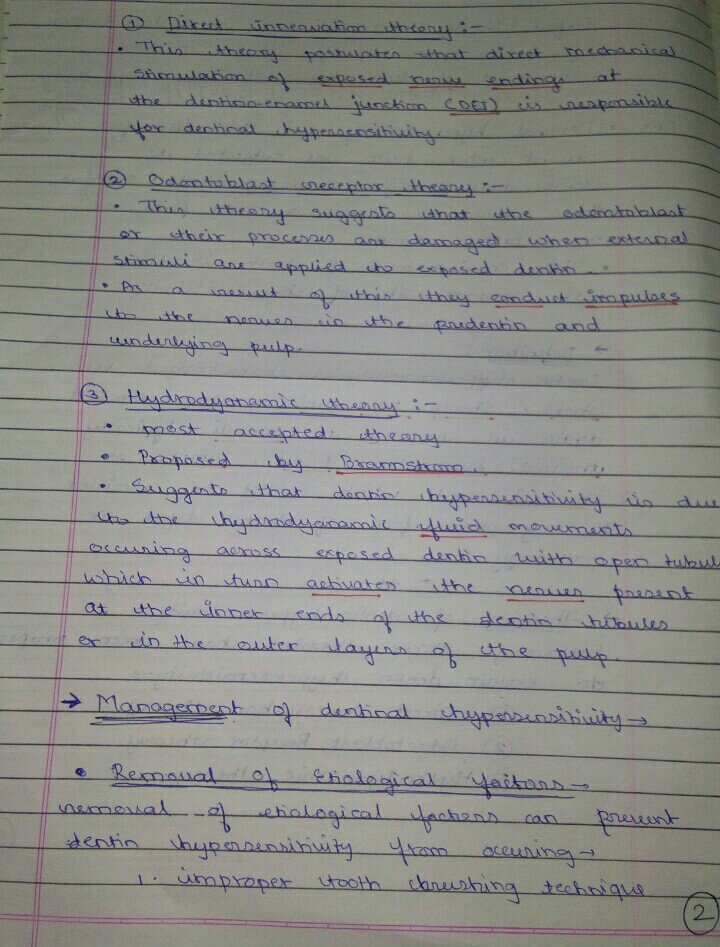 ① Direct innervation theory :-
• This theory postulates that direct mechanical
stimulation of exposed nerve endings at
the dentino-enamel junction (DEJ) is responsible
for dentinal hypersensitivity.
② Odontoblast receptor theory :-
• This theory suggests that the odontoblast
or their processes are damaged when external
stimuli are applied to exposed dentin.
• As a result of this they conduct impulses
to the nerves in the predentin and
underlying pulp.
③ Hydrodyanamic theory :-
• most accepted theory
• Proposed by Brannstrom.
• Suggests that dentin hypersensitivity is due
to the hydrodyanamic fluid movements
occuring across exposed dentin with open tubul
which in turn activates the nerves present
at the inner ends of the dentin tubules
or in the outer layers of the pulp.
→ Management of dentinal hypersensitivity →
• Removal of Etiological factors →
removal of etiological factors can prevent
dentin hypersensitivity from occuring →
1. improper tooth brushing technique
②